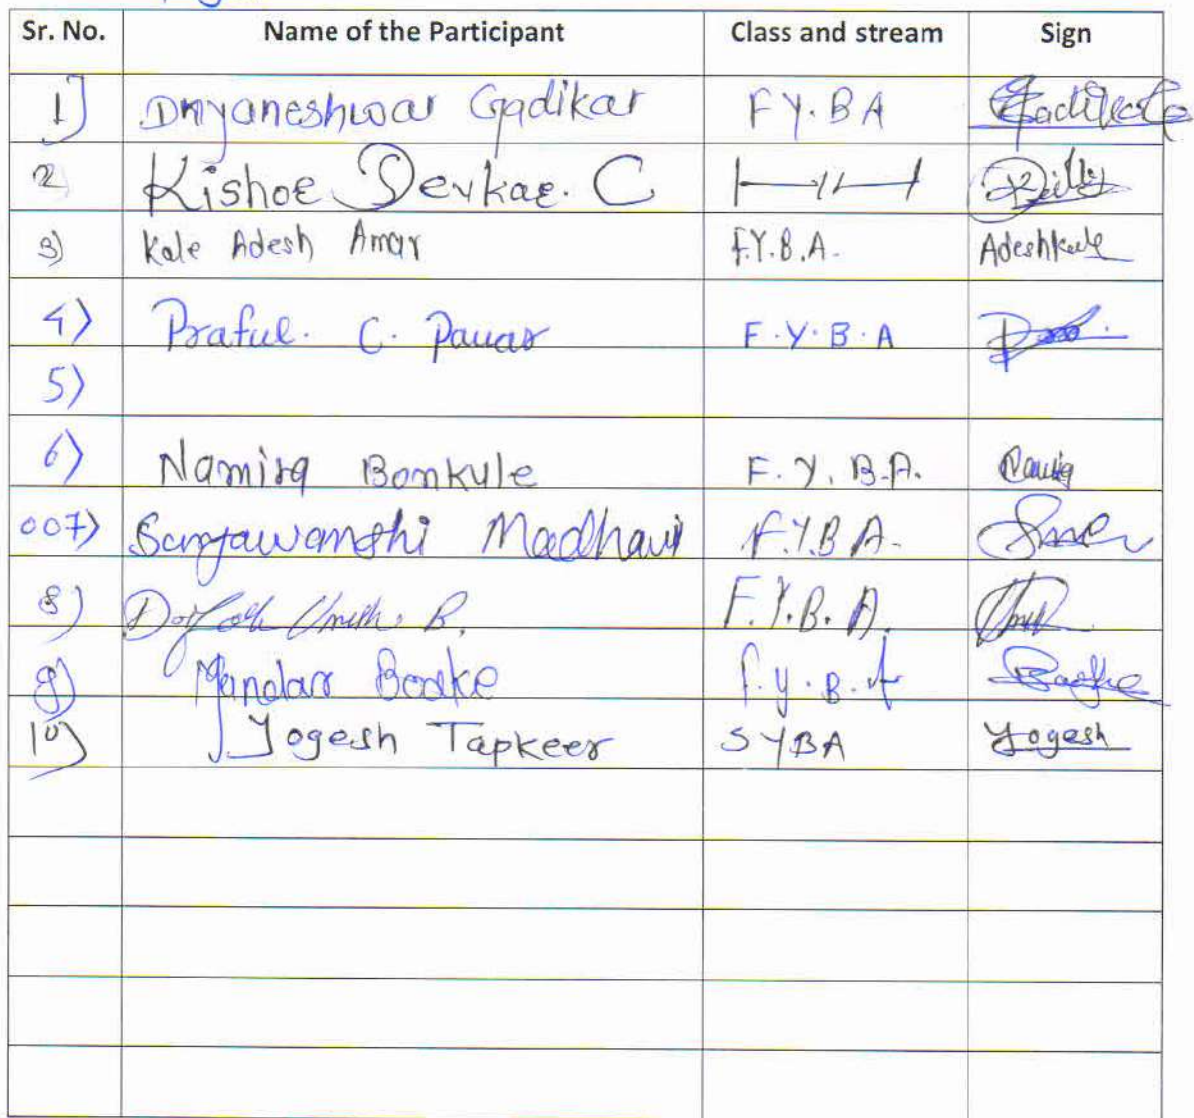 Sr. No. Name of the Participant Class and stream Sign
1] Dnyaneshwar Gadikar F Y. B A
2 Kishoe Devkae. C —〃—
3) Kale Adesh Amar F.Y.B.A. Adeshkale
4) Praful. C. Pawar F.Y.B.A
5)
6) Namira Bonkule F.Y.B.A.
007) Suryawanshi Madhavi F.Y.B A.
8) Umesh B. F.Y.B.A.
9) Mandar Bodke F.y.B.A
10) Yogesh Tapkeer SYBA Yogesh